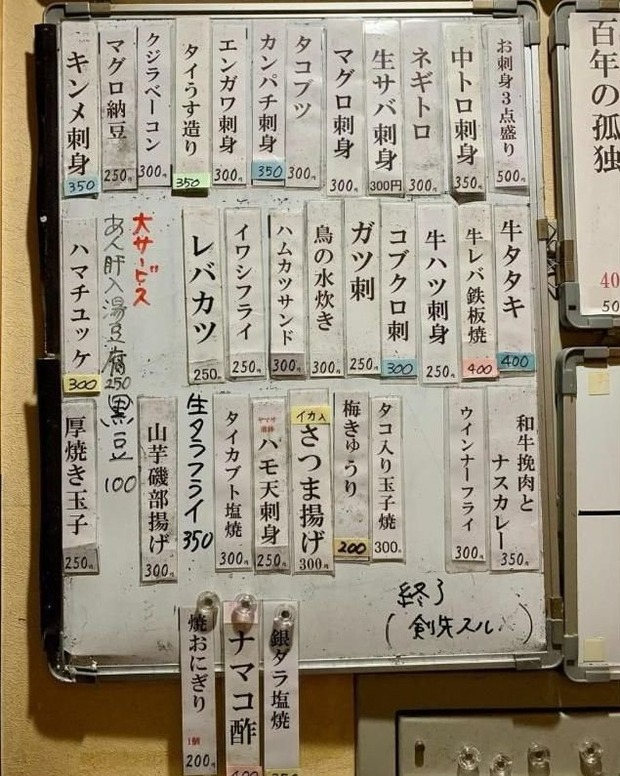 お刺身3点盛り 500円
中トロ刺身 350円
ネギトロ 300円
生サバ刺身 300円
マグロ刺身 300円
タコブツ 300円
カンパチ刺身 350
エンガワ刺身 300円
タイうす造り 350
クジラベーコン 300円
マグロ納豆 250円
キンメ刺身 350
牛タタキ 400
牛レバ鉄板焼 400
牛ハツ刺身 250円
コブクロ刺 300
ガツ刺 250円
鳥の水炊き 300円
ハムカツサンド 300円
イワシフライ 250円
レバカツ 250円
大サービス
あん肝入湯豆腐 250
ハマチユッケ 300
和牛挽肉と
ナスカレー 350円
ウインナーフライ 300円
タコ入り玉子焼 300円
梅きゅうり 200
イカ入
さつま揚げ 300円
ハモ天刺身 250円
タイカブト塩焼 300円
生タラフライ 350
山芋磯部揚げ 300円
黒豆 100
厚焼き玉子 250円
終了
銀ダラ塩焼
ナマコ酢
焼おにぎり 1個 200円
百年の孤独